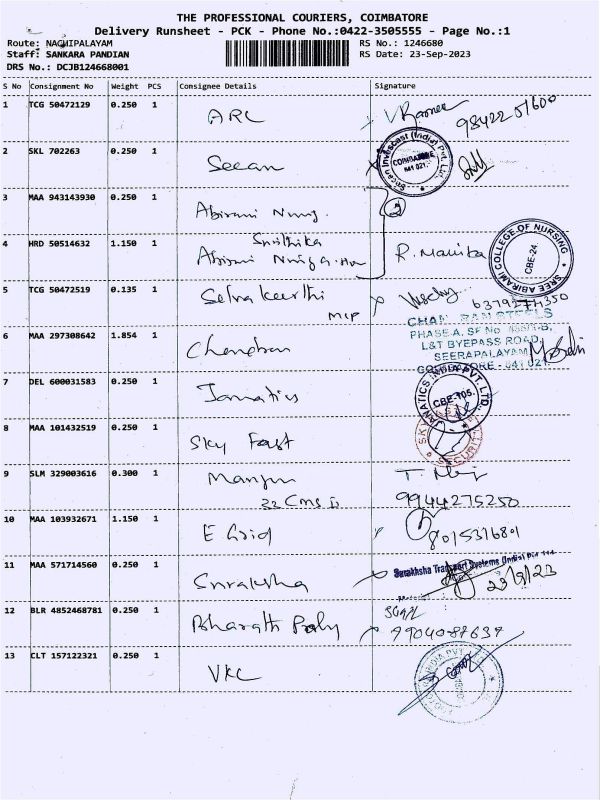 THE PROFESSIONAL COURIERS, COIMBATORE
Delivery Runsheet - PCK - Phone No.:0422-3505555 - Page No.:1
Route: NAGHIPALAYAM RS No.: 1246680
Staff: SANKARA PANDIAN RS Date: 23-Sep-2023
DRS No.: DCJB124668001
S No Consignment No Weight PCS Consignee Details Signature
1 TCG 50472129 0.250 1 ARC 98422 51600
2 SKL 702263 0.250 1 Seean COIMBATORE 641 021.
3 MAA 943143930 0.250 1 Abirami Nurg. 2
4 HRD 50514632 1.150 1 Abirami R. Manika SREE ABIRAMI COLLEGE OF NURSING CBE-24
5 TCG 50472519 0.135 1 Selvakeerthi
MIP
PHASE-A, SF No
L&T BYEPASS ROAD,
SEERAPALAYAM
6 MAA 297308642 1.854 1 Chendran COIMBATORE - 641 021
7 DEL 600031583 0.250 1 Janatics JANATICS INDIA PVT. LTD. CBE-105.
8 MAA 101432519 0.250 1 Sky Fast
9 SLM 329003616 0.300 1 Manjun
9944275250
10 MAA 103932671 1.150 1 E Grid 8015316801
11 MAA 571714560 0.250 1 Suraksha Surakhsha Transport Systems (India) Pvt Ltd
23/9/23
12 BLR 4852468781 0.250 1 Bharath Poly 9904087637
13 CLT 157122321 0.250 1 VKC